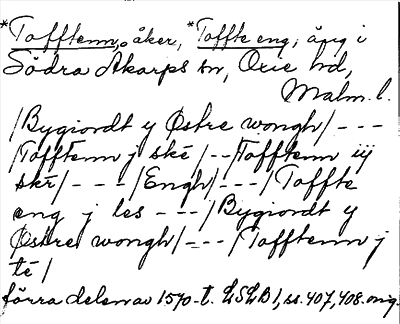 *Tofftenn, åker, *Toffte eng, äng i
Södra Åkarps sn, Oxie hd,
Malm. l.
/Bygiordt y Østre wongh/ - - -
/Tofftenn j ské/ - - /Tofftenn iij
skè/ - - - /Engh/ - - - /Toffte
eng j les - - - /Bygiordt y
Østre wongh/ - - - /Tofftenn j
té/
förra delen av 1570-t. LSLB 1, ss. 407, 408. orig.